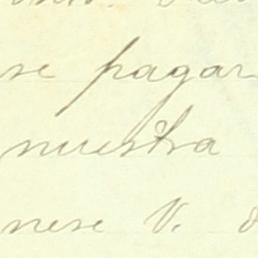 se pagar
nuestra
nese V.